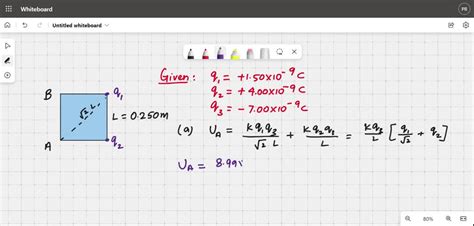 Whiteboard
PB
Untitled whiteboard
Given: q₁ = +1.50×10⁻⁹C
q₂ = +4.00×10⁻⁹C
q₃ = -7.00×10⁻⁹C
B q₁
√2 L
L = 0.250m
A q₂
(a) U_A = kq₁q₃/√2 L + kq₂q₃/L = kq₃/L [q₁/√2 + q₂]
U_A = 8.99×
80%